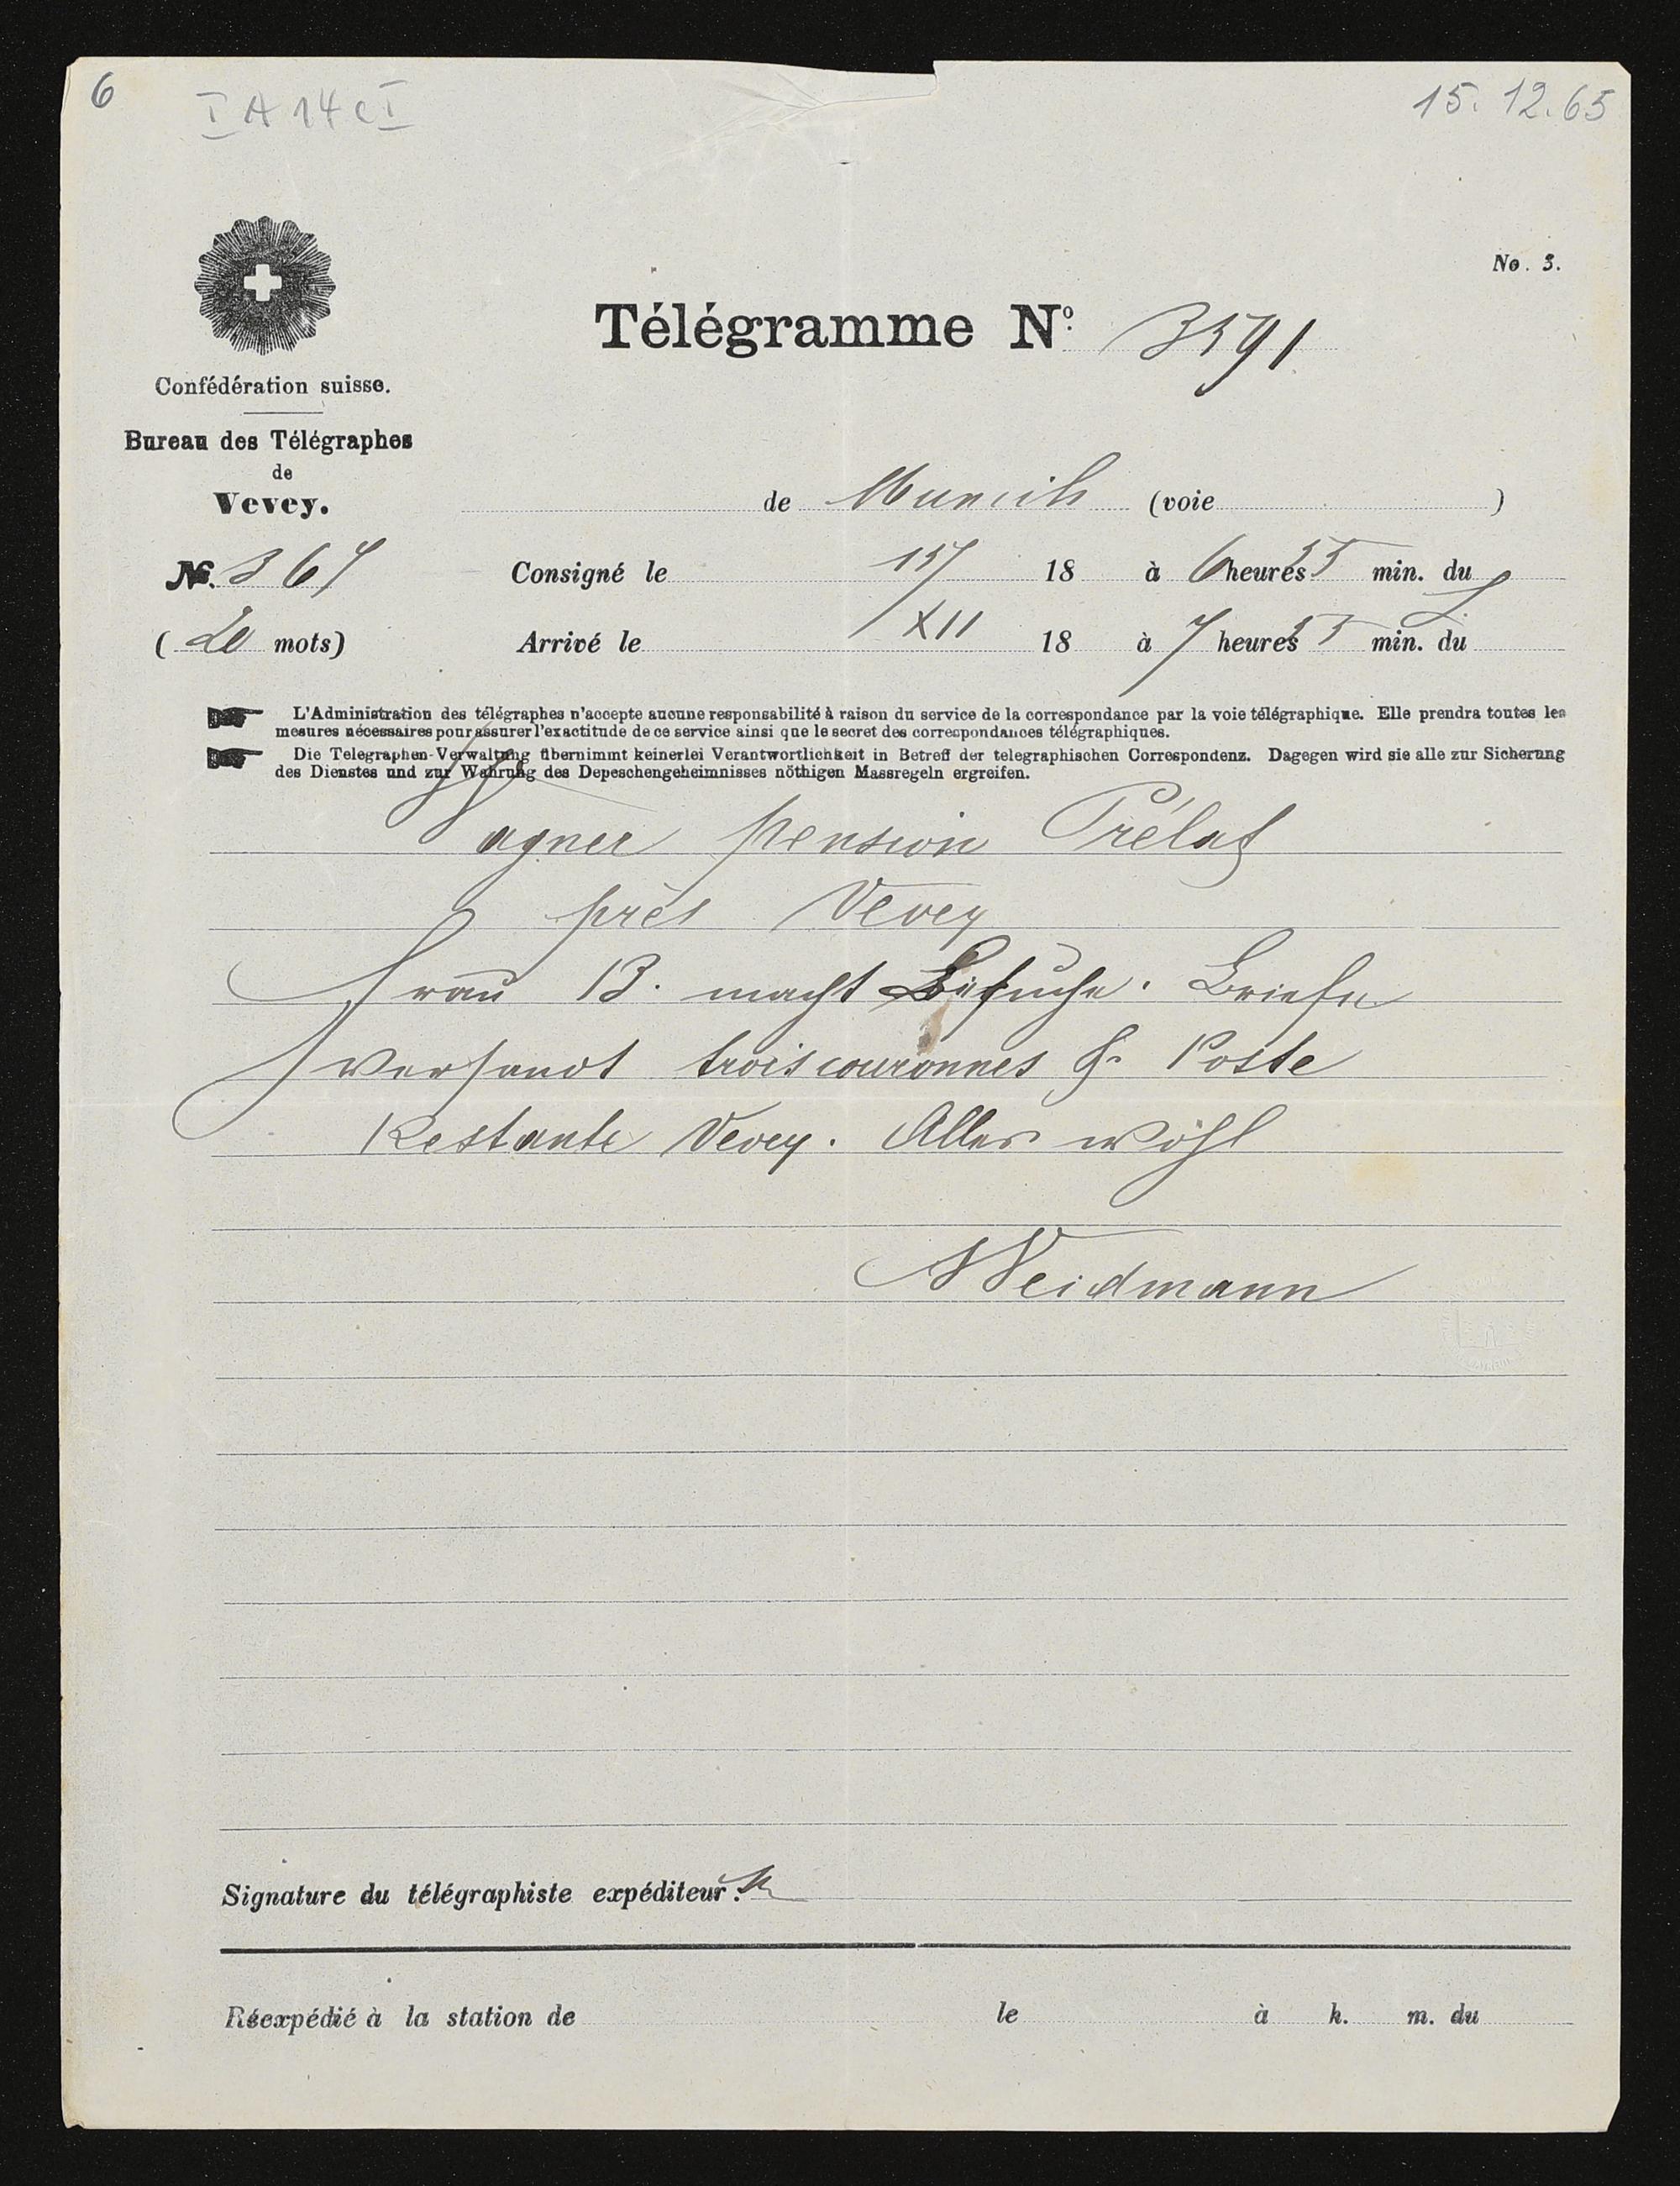 6
I A 14 c I
15. 12. 65
No. 3.
Télégramme Nº 3591
Confédération suisse.
Bureau des Télégraphes
de
Vevey.
de Munich (voie )
№. 367 Consigné le 15/ 18 à 6 heures 55 min. du S.
(20 mots) Arrivé le XII 18 à 7 heures 55 min. du
L'Administration des télégraphes n'accepte aucune responsabilité à raison du service de la correspondance par la voie télégraphique. Elle prendra toutes les
mesures nécessaires pour assurer l'exactitude de ce service ainsi que le secret des correspondances télégraphiques.
Die Telegraphen-Verwaltung übernimmt keinerlei Verantwortlichkeit in Betreff der telegraphischen Correspondenz. Dagegen wird sie alle zur Sicherung
des Dienstes und zur Wahrung des Depeschengeheimnisses nöthigen Massregeln ergreifen.
Wagner pension Prélat
près Vevey
Frau B. macht Besuche. Briefe
versandt trois couronnes & Poste
Restante Vevey. Alles wohl
Weidmann
Signature du télégraphiste expéditeur:
Réexpédié à la station de le à h. m. du